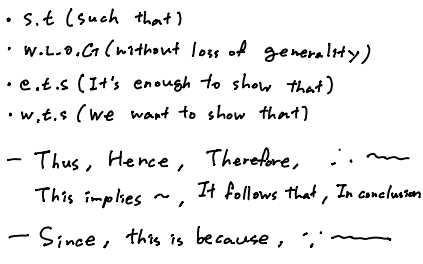 · s.t (such that)
· W.L.O.G (without loss of generality)
· e.t.s (It's enough to show that)
· w.t.s (We want to show that)
— Thus, Hence, Therefore, ∴ ~
This implies ~, It follows that, In conclusion
— Since, this is because, ∵ ~